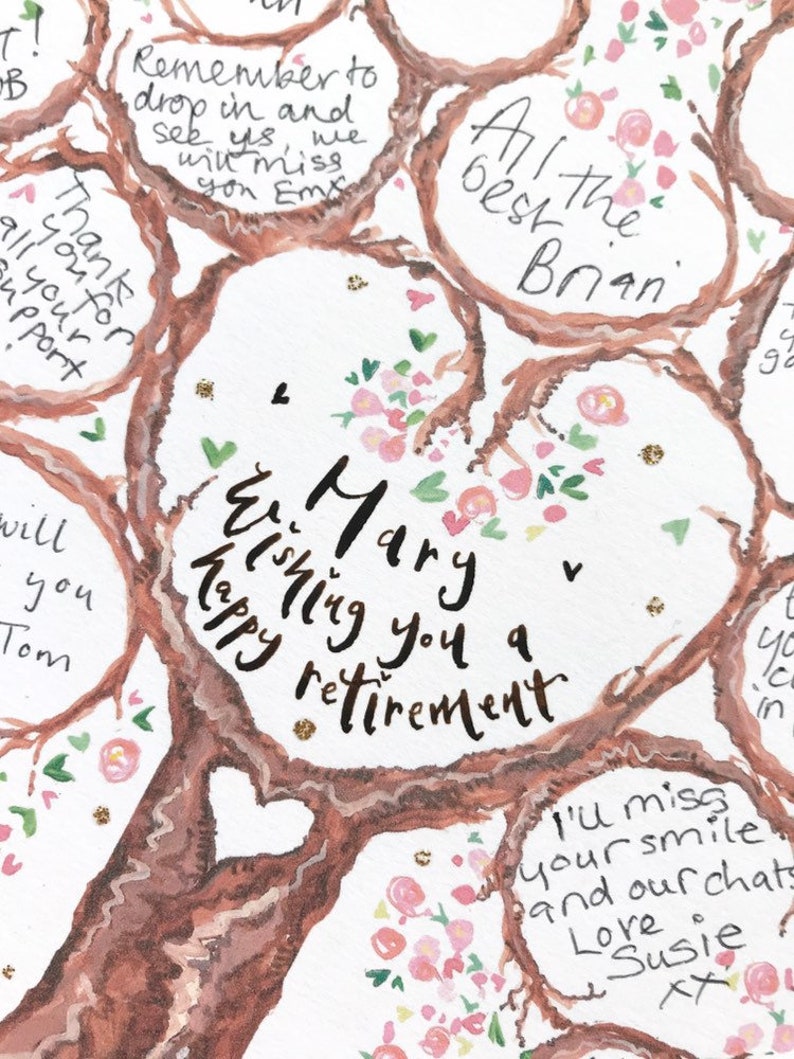 Remember to
drop in and
see us, we
will miss
you Emx
All the
best
Brian
Thank
you for
all your
support
Mary
Wishing you a
happy retirement
will
you
Tom
I'll miss
your smile
and our chats
Love
Susie
xx